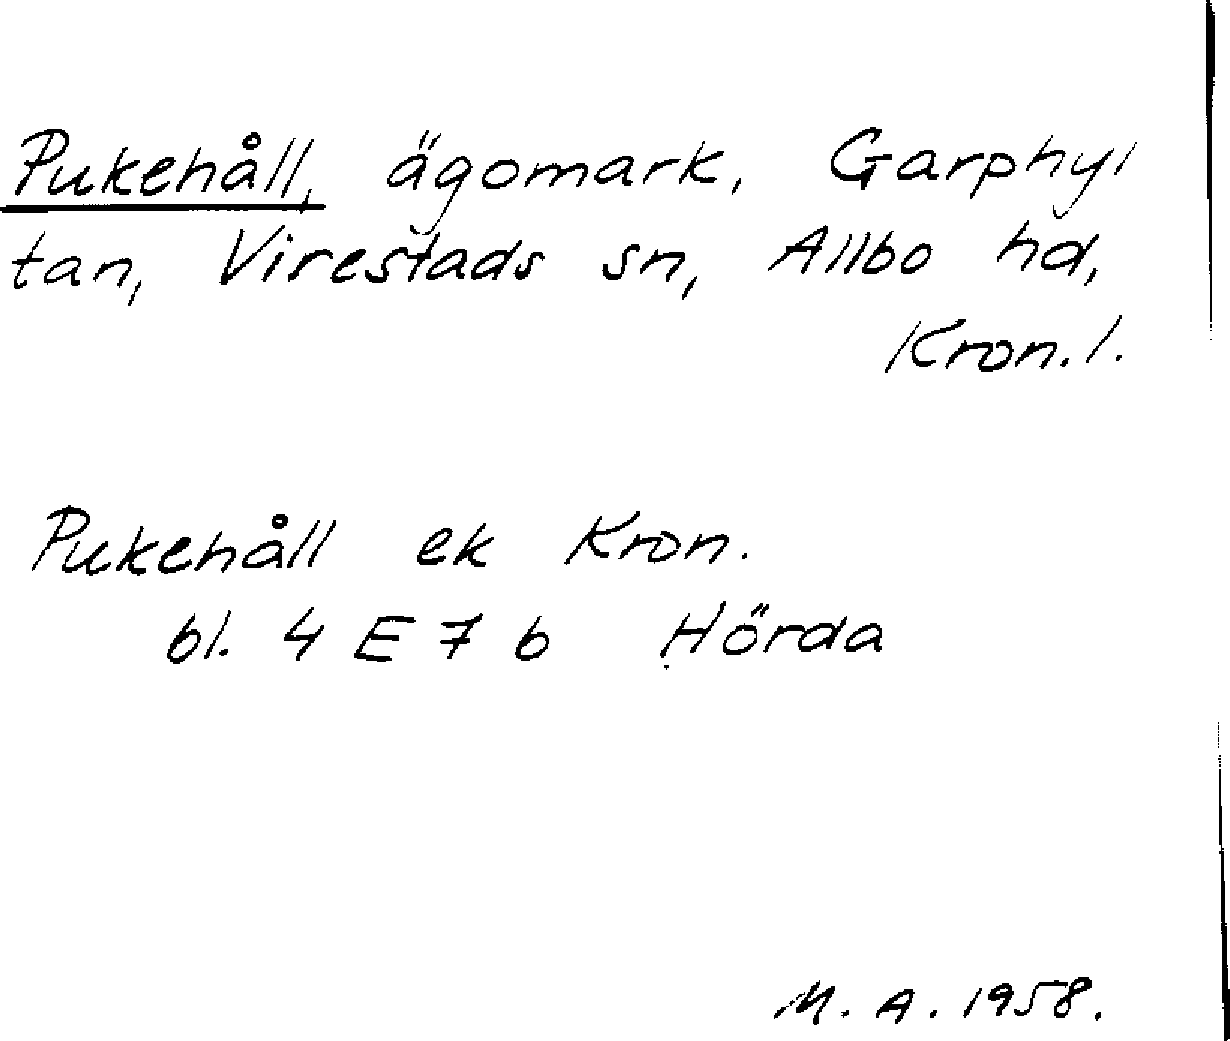 Pukehåll, ägomark, Garphyl
tan, Virestads sn, Allbo hd,
Kron. l.
Pukehåll ek Kron.
bl. 4 E 7 b Hörda
M. A. 1958.